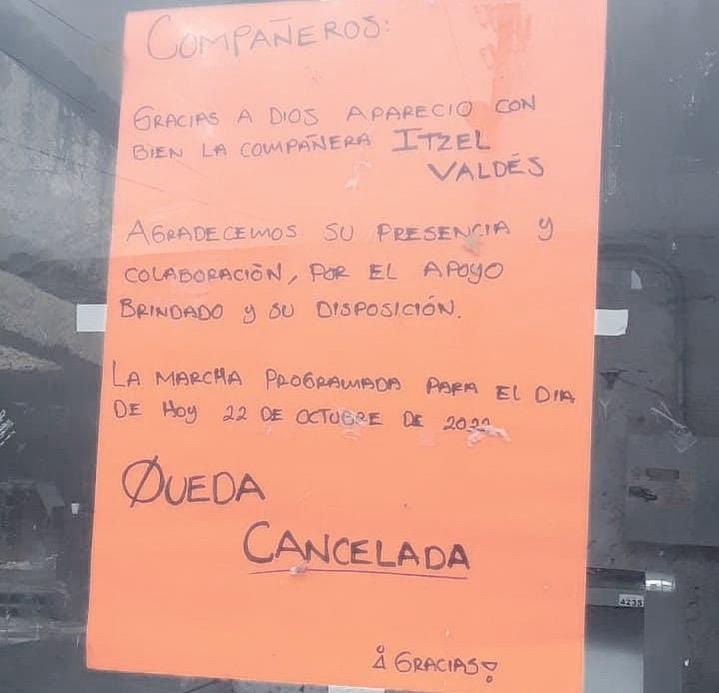 COMPAÑEROS:
GRACIAS A DIOS APARECIO CON
BIEN LA COMPAÑERA ITZEL
VALDÉS
AGRADECEMOS SU PRESENCIA Y
COLABORACIÓN, POR EL APOYO
BRINDADO Y SU DISPOSICIÓN.
LA MARCHA PROGRAMADA PARA EL DIA
DE HOY 22 DE OCTUBRE DE 2022
QUEDA
CANCELADA
¡GRACIAS!
4235